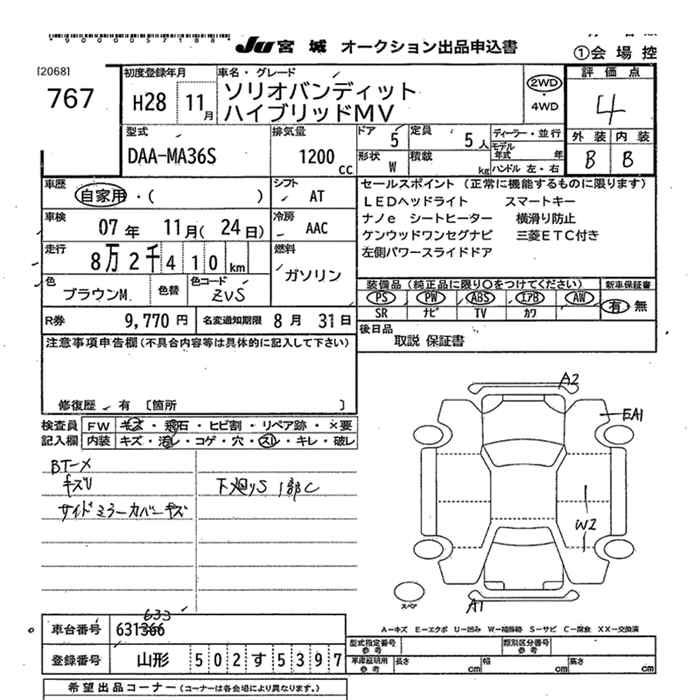 JU 宮城 オークション出品申込書
①会場控
[2068]
767
初度登録年月
H28 11月
車名・グレード
ソリオバンディット
ハイブリッドMV
2WD
・
4WD
評価点
4
外装 内装
B B
型式
DAA-MA36S
排気量
1200cc
ドア 5
定員 5人
ディーラー・並行
モデル年式 年
形状 W
積載 kg
ハンドル 左・右
車歴
自家用・( )
シフト AT
車検
07年 11月(24日)
冷房 AAC
走行
8万2千410km
燃料
ガソリン
色
ブラウンM.
色替
色コード
ZVS
R券 9,770円
名変通知期限 8月 31日
セールスポイント (正常に機能するものに限ります)
LEDヘッドライト スマートキー
ナノe シートヒーター 横滑り防止
ケンウッドワンセグナビ 三菱ETC付き
左側パワースライドドア
装備品(純正品に限り○をつけてください)
新車保証書
PS PW ABS エアB AW
SR ナビ TV カワ
有・無
後日品
取説 保証書
注意事項申告欄(不具合内容等は具体的に記入して下さい)
修復歴・有 〔箇所 〕
検査員記入欄
FW キズ・飛石・ヒビ割・リペア跡・×要
内装 キズ・汚レ・コゲ・穴・スレ・キレ・破レ
BT-メ
キズU
下廻りS 1部C
サイドミラーカバーキズ
A2
EA1
W2
A1
スペア
A-キズ E-エクボ U-凹み W-補修跡 S-サビ C-腐食 XX-交換済
車台番号 631366
633
登録番号 山形 502す5397
型式指定番号
参考
類別区分番号
参考
車庫証明用
参考
長さ cm 幅 cm 高さ cm
希望出品コーナー(コーナーは各会場により異なります。)